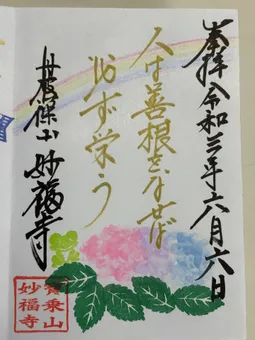 奉拝 令和三年六月六日
人は善根をなせば
必ず栄う
丹波篠山 妙福寺
寳乗山
妙福寺